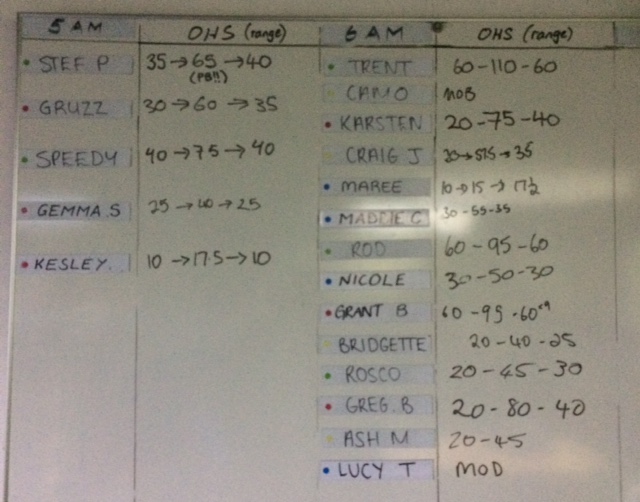 5 AM OHS (range) 6 AM OHS (range)
STEF P 35→65→40
(PB!!)
GRUZZ 30→60→35
SPEEDY 40→75→40
GEMMA S 25→40→25
KESLEY. 10→17.5→10
TRENT 60-110-60
CAMO MOB
KARSTEN 20-75-40
CRAIG J 30→57.5→35
MAREE 10→15→17½
MADDIE C 30-55-35
ROD 60-95-60
NICOLE 30-50-30
GRANT B 60-95-60
BRIDGETTE 20-40-25
ROSCO 20-45-30
GREG.B 20-80-40
ASH M 20-45
LUCY T MOD